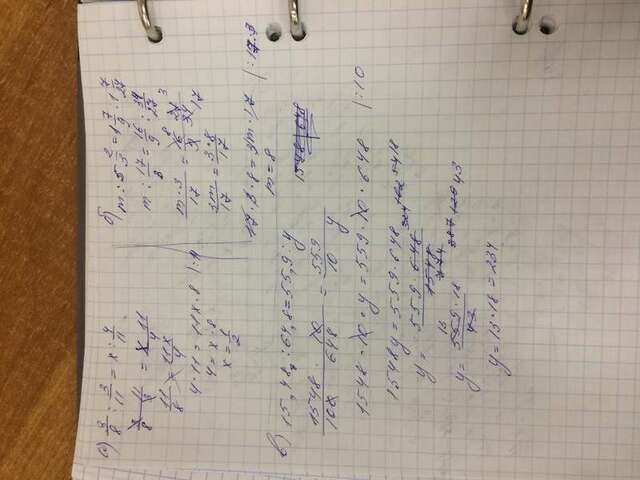 а) 3/8 : 3/11 = x : 4/11
3/8 · 11/3 = x · 11/4
11/8 = 11x/4
4·11 = 11x·8 |:11
4 = x·8
x = 1/2
б) m : 5 2/3 = 1 7/9 : 1 7/27
m : 17/3 = 16/9 : 34/27
m·3/17 = 16/9 · 27/34 8 3 17
3m/17 = 3·8/17
17·3·8 = 3m·17 |:17·3
m = 8
в) 15,48 : 64,8 = 55,9 : y
1548 648
1548 · 10/100 648 = 559/10 y
1548 · 10 · y = 559 · 10 · 648 |:10
1548y = 559 · 648
y = 559 · 648/1548 324 162 54 18
774 387 129 43
y = 559 · 18/43 13
y = 13 · 18 = 234